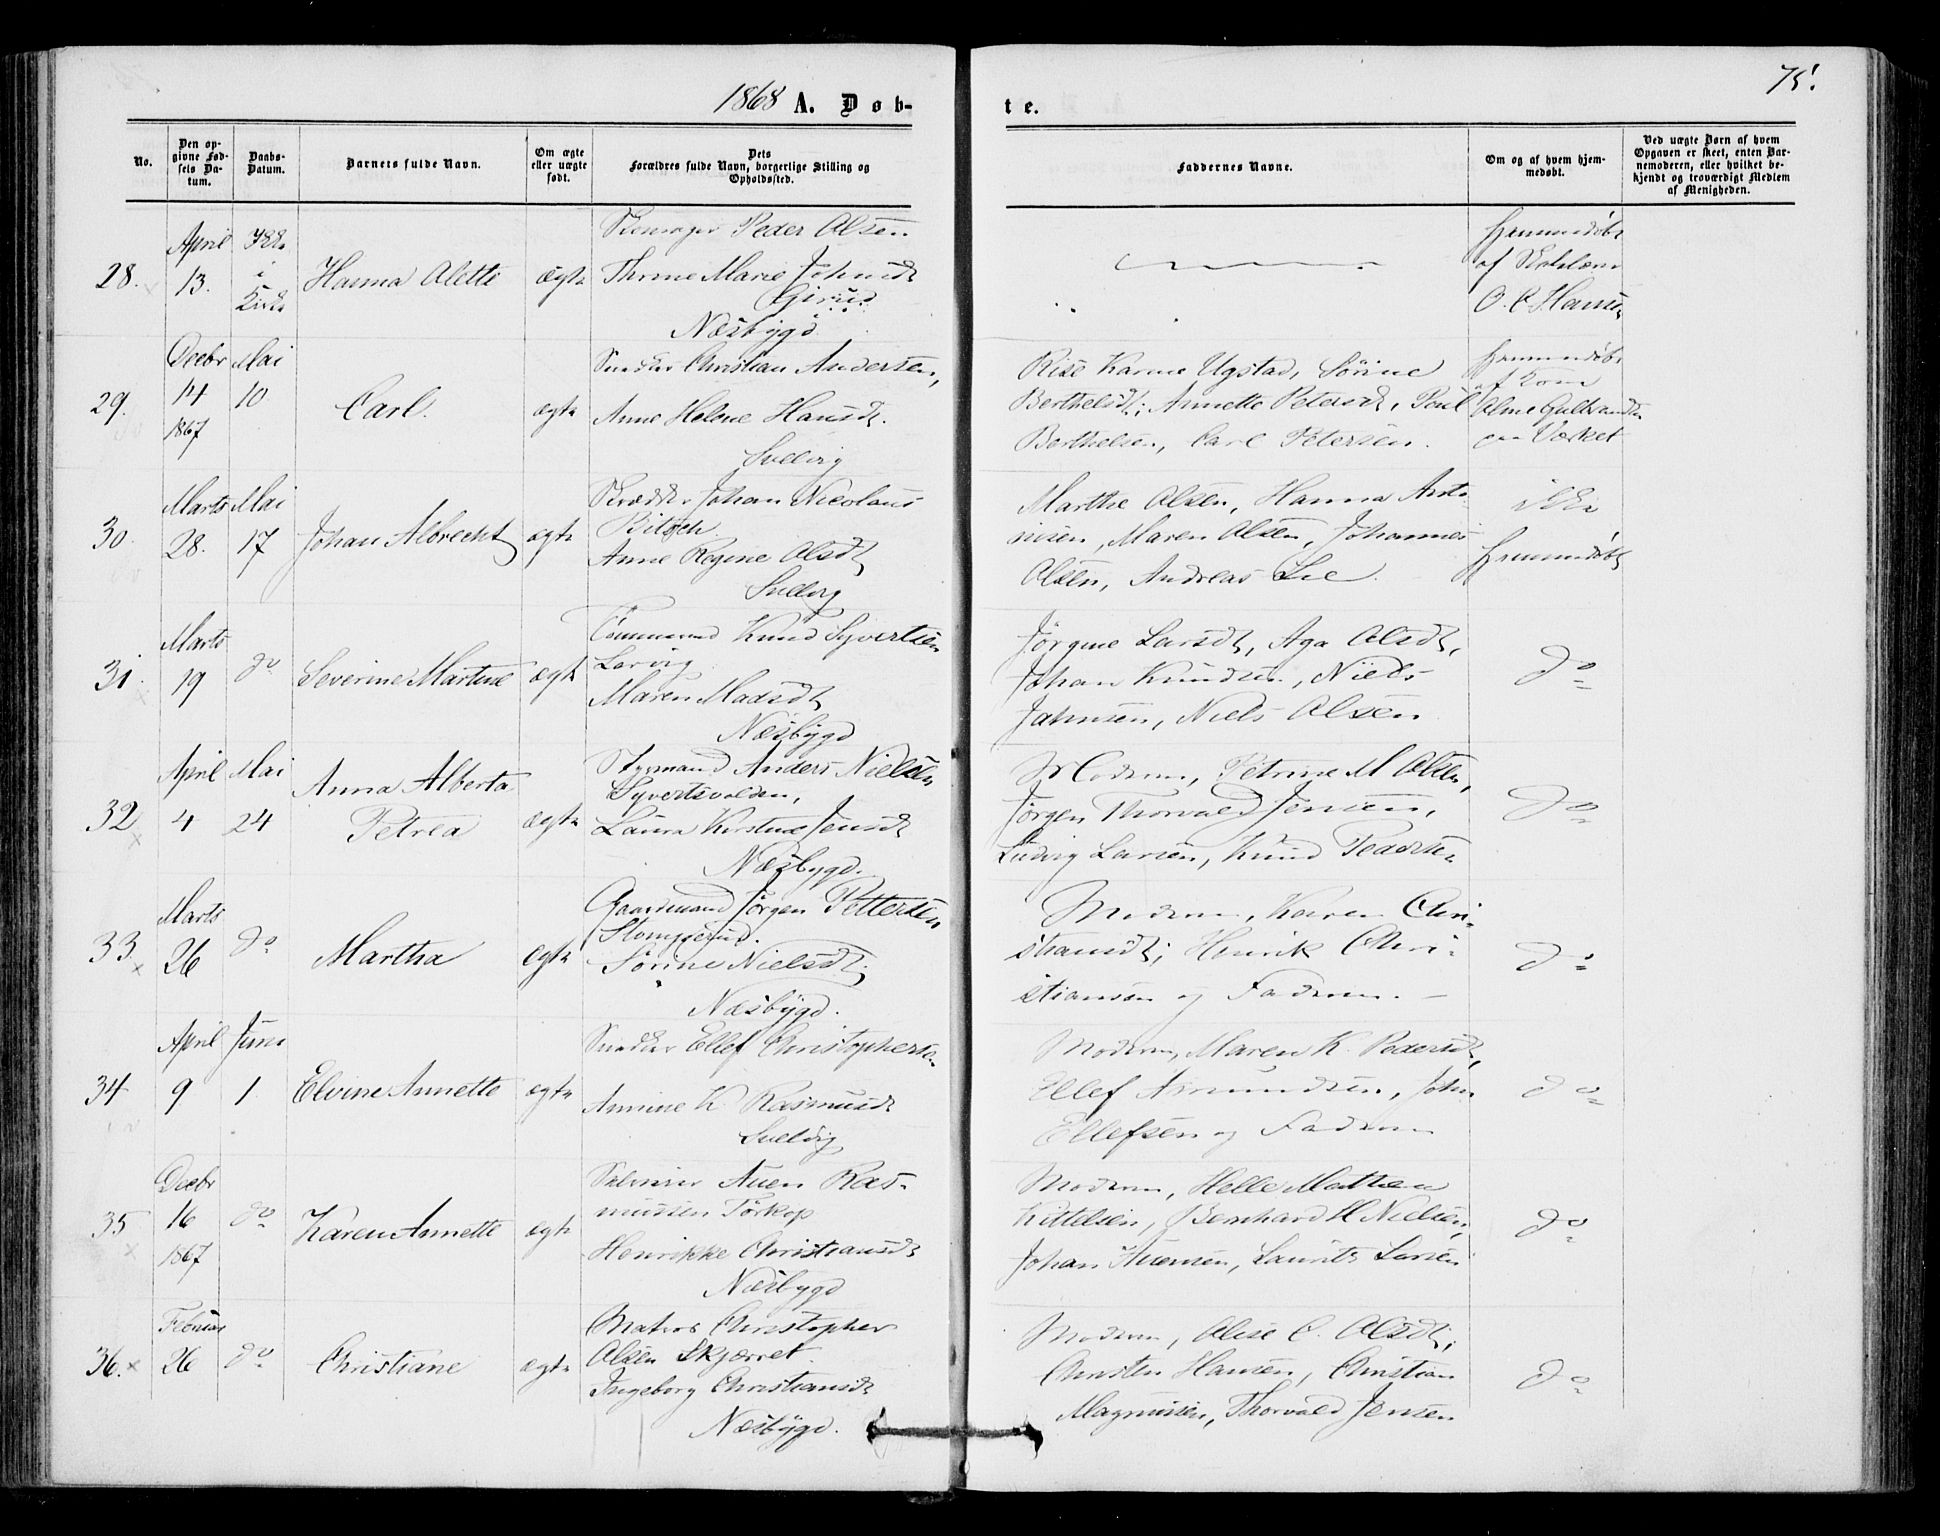 1868 A. Døb-
te.
75!
No.
Den op-
givne Fød-
sels Da-
tum.
Daabs-
Datum.
Barnets fulde Navn.
Om ægte
eller uægte
født.
Dets
Forældres fulde Navn, borgerlige Stilling og
Opholdssted.
Faddernes Navne.
Om og af hvem hjem-
medøbt.
Ved uægte Børn af hvem
Opgaven er skeet, enten Bar-
nemoderen, eller hvilket be-
kjendt og troværdigt Medlem
af Menigheden.
28.
April
13.
Ikke
i
Kirke
Hanna Olette
ægte
Peder Olsen
Thrine Marie Johnsdt
Næsbygd
Hjemmedøbt
af
O. C. Hansen
29.
Decbr
14
1867
Mai
10
Carl.
ægte
Snedker Christian Andersen,
Anne Helene Hansdt.
Svelvig
Karine Ugstad, Sørine
Berthelsdt, Annette Petersdt, Poul
Berthelsen, Carl Petersen.
Hjemmedøbt
af Kone
Værket
30.
Marts
28.
Mai
17
Johan Albrecht
ægte
Skrædder Johan Nicolaus
Bitsch
Anne Regine Olsdt
Svelvig
Marthe Olsen, Hanna Anto
nisen, Maren Olsen, Johannes
Olsen, Andreas Lie.
ikke
Hjemmedøbt
31.
Marts
19
do
Severine Martine
ægte
Tømmermand Knud Syvertsen
Lervig
Maren Madsdt
Næsbygd
Jørgine Larsdt, Aga Olsdt,
Johan Knudsen, Niels
Johnsen, Niels Olsen
do
32
April
4
Mai
24
Anna Alberta
Petrea
ægte
Styrmand Anders Nielsen
Syvertsvolden,
Laura Kirstine Jensdt
Næsbygd.
Moderen, Petrine M Olsen,
Jørgen Thorvald Jensen,
Ludvig Larsen, Knud Pedersen
do
33
Marts
26
do
Martha
ægte
Gaardmand Jørgen Pettersen
Sørine Nielsdt.
Næsbygd.
Moderen, Karen Chri-
stiansdt, Henrik Chri-
stiansen og Faderen.
do
34
April
9
Juni
1
Elvine Annette
ægte
Snedker Ellef Christophersen
Annine K. Rasmusdt
Svelvig
Moderen, Maren K. Pedersdt,
Ellef Amundsen, John
Ellefsen og Faderen
do
35
Decbr
16
1867
do
Karen Annette
ægte
Auen Ras-
mussen Torkop
Henrikke Christiansdt
Næsbygd
Moderen, Helle Mathea
Kittelsen, Bernhard H Nielsen,
Johan Auensen, Laurits Larsen
do
36.
Februar
26
do
Christiane
ægte
Matros Christopher
Olsen Skjærret
Ingeborg Christiansdt
Næsbygd.
Moderen, Olise C. Olsdt,
Christen Hansen, Christian
Magnussen, Thorvald Jensen
do